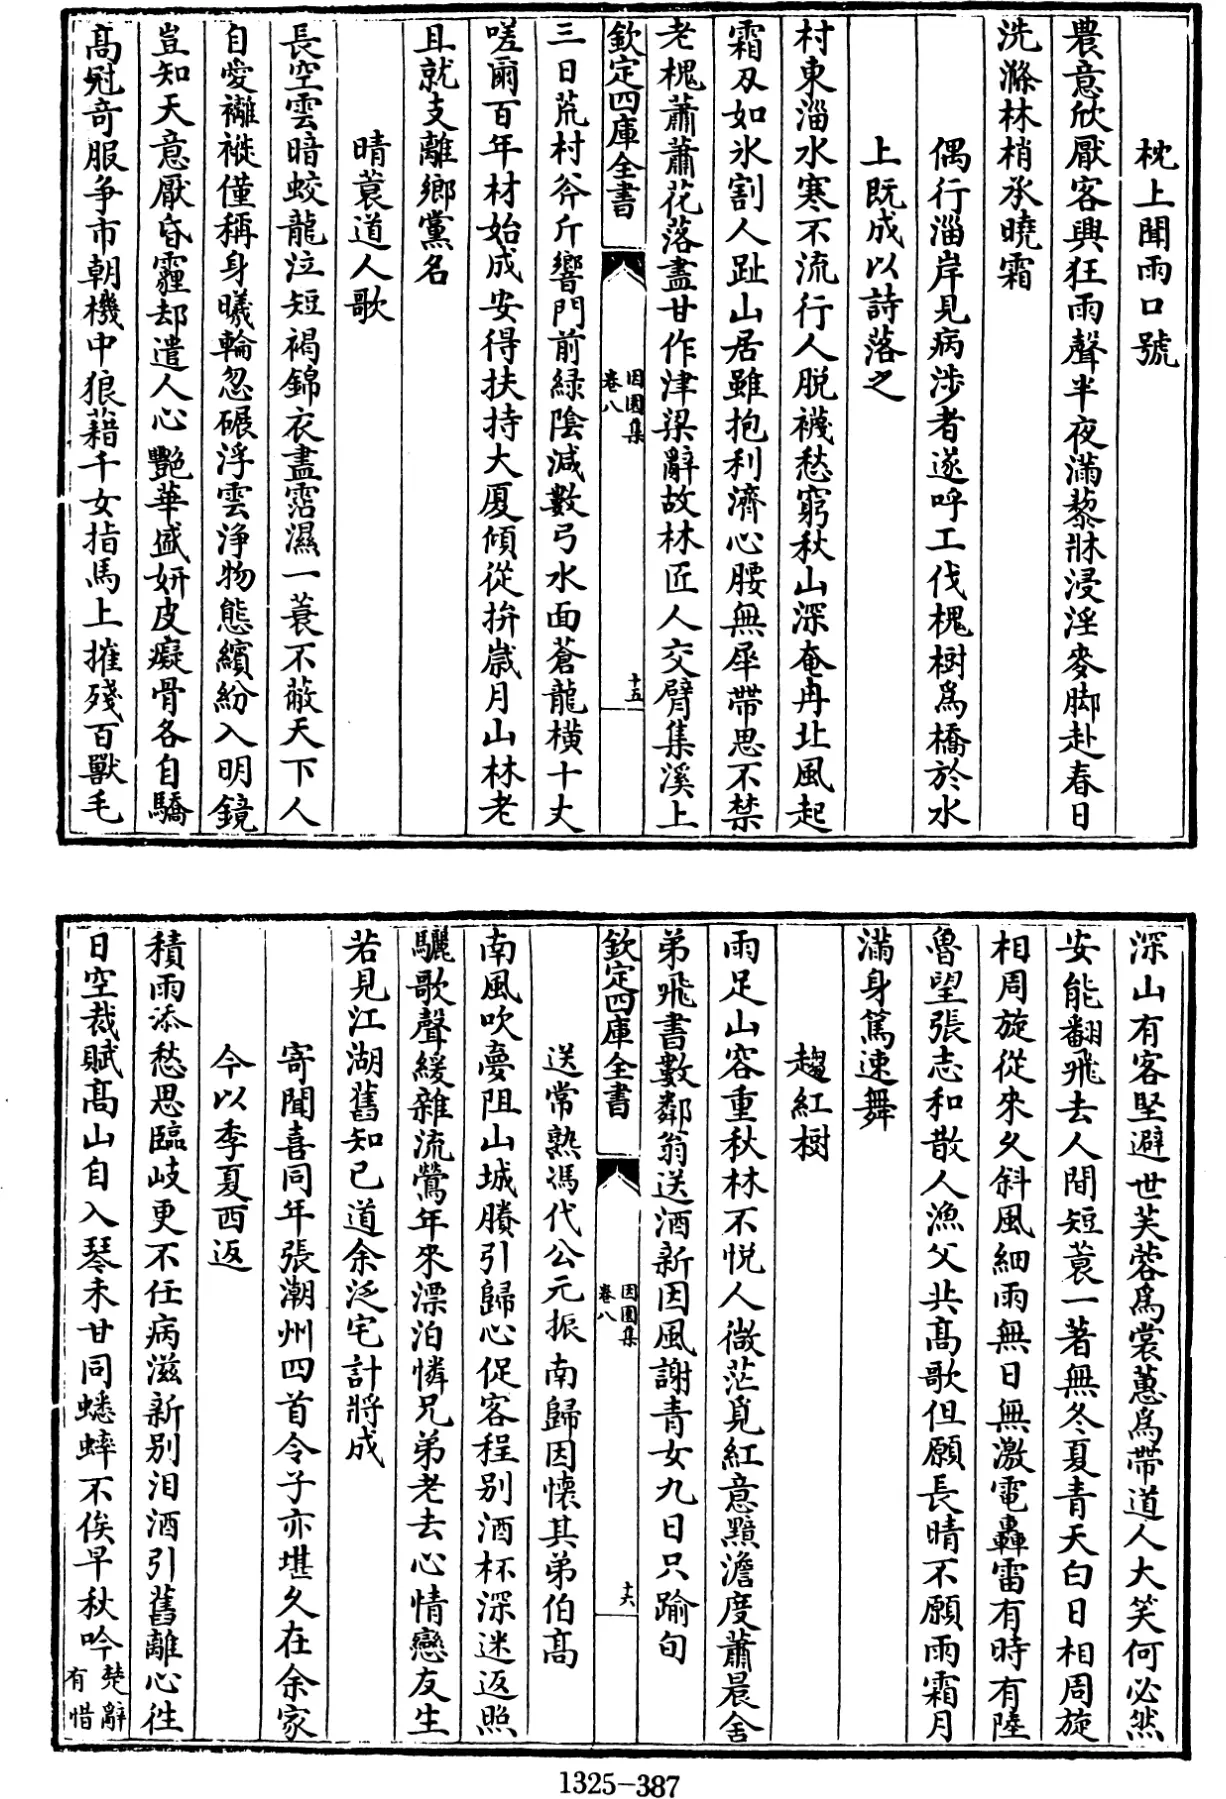 枕上聞雨口號
農意欣厭客興狂雨聲半夜滿藜牀浸淫麥脚赴春日
洗滌林梢承曉霜
偶行淄岸見病涉者遂呼工伐槐樹爲橋於水
上既成以詩落之
村東淄水寒不流行人脱襪愁窮秋山深奄冉北風起
霜刄如氷割人趾山居雖抱利濟心腰無犀帶思不禁
老槐蕭蕭花落盡甘作津梁辭故林匠人交臂集溪上
欽定四庫全書
因園集
卷八
十五
三日荒村斧斤響門前緑陰減數弓水面蒼龍横十丈
嗟爾百年材始成安得扶持大厦傾從拚嵗月山林老
且就支離鄉黨名
晴蓑道人歌
長空雲暗蛟龍泣短褐錦衣盡霑濕一蓑不蔽天下人
自愛襹褷僅稱身曦輪忽碾浮雲浄物態繽紛入明鏡
豈知天意厭昏霾却遣人心艷華盛妍皮癡骨各自驕
髙冠竒服争市朝機中狼藉千女指馬上摧殘百獸毛
深山有客堅避世芙蓉爲裳蕙爲帶道人大笑何必然
安能翻飛去人間短蓑一著無冬夏青天白日相周旋
相周旋從來久斜風細雨無日無激電轟雷有時有陸
魯望張志和散人漁父共髙歌但願長晴不願雨霜月
滿身篤速舞
趨紅樹
雨足山容重秋林不悦人微茫覓紅意黯澹度蕭晨舍
弟飛書數鄰翁送酒新因風謝青女九日只踰旬
欽定四庫全書
因園集
卷八
十六
送常熟馮代公元振南歸因懷其弟伯髙
南風吹夣阻山城賸引歸心促客程别酒杯深迷返照
驪歌聲緩雜流鶯年來漂泊憐兄弟老去心情戀友生
若見江湖舊知已道余泛宅計將成
寄聞喜同年張潮州四首令子亦堪久在余家
今以季夏西返
積雨添愁思臨岐更不任病滋新别泪酒引舊離心徃
日空裁賦髙山自入琴未甘同蟋蟀不俟早秋吟楚辭
有惜
1325-387